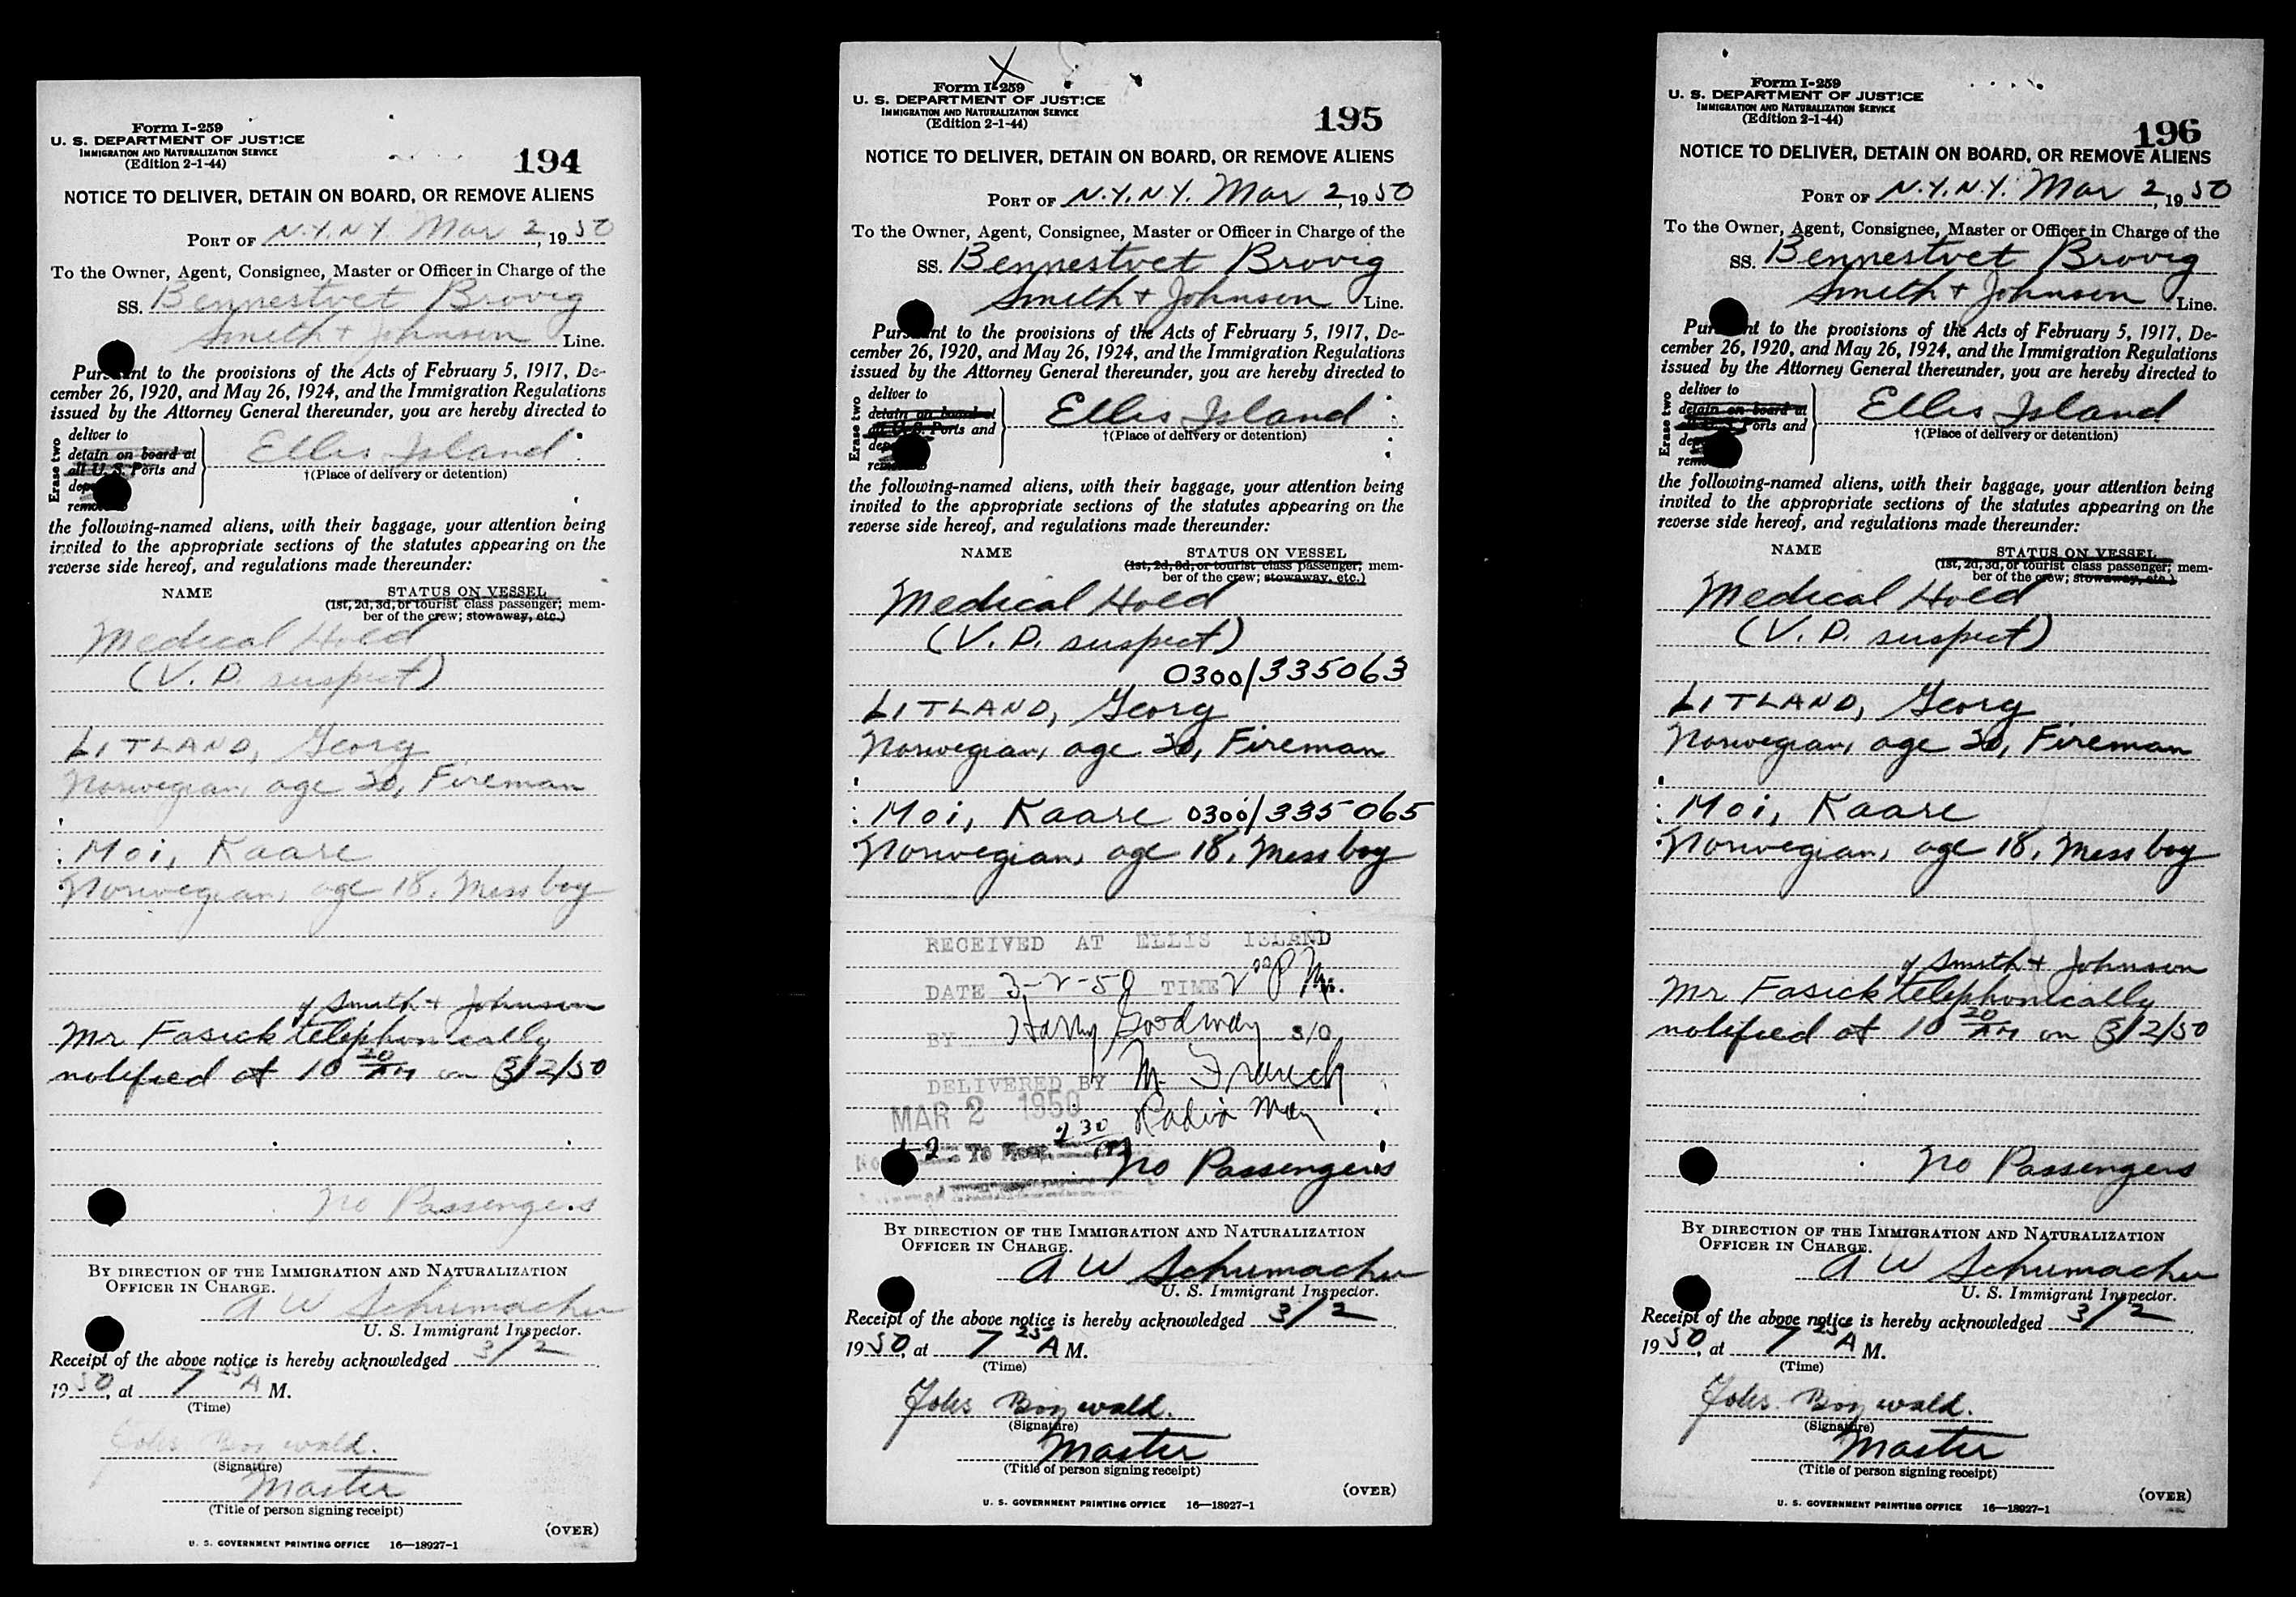 Form I-259
U. S. DEPARTMENT OF JUSTICE
IMMIGRATION AND NATURALIZATION SERVICE
(Edition 2-1-44)
194
NOTICE TO DELIVER, DETAIN ON BOARD, OR REMOVE ALIENS
PORT OF N.Y. N.Y. Mar 2, 1950
To the Owner, Agent, Consignee, Master or Officer in Charge of the
SS. Bennestvet Brovig
Smith + Johnson Line.
Pursuant to the provisions of the Acts of February 5, 1917, De-
cember 26, 1920, and May 26, 1924, and the Immigration Regulations
issued by the Attorney General thereunder, you are hereby directed to
Erase two
deliver to
detain on board at
all U. S. Ports and
Ellis Island
†(Place of delivery or detention)
the following-named aliens, with their baggage, your attention being
invited to the appropriate sections of the statutes appearing on the
reverse side hereof, and regulations made thereunder:
NAME STATUS ON VESSEL
(1st, 2d, 3d, or tourist class passenger; mem-
ber of the crew; stowaway, etc.)
Medical Hold
(V. D. suspect)
LITLAND, Georg
Norwegian, age 20, Fireman
Moi, Kaare
Norwegian, age 18, Mess boy
of Smith + Johnson
Mr Fasick telephonically
notified at 10 20 AM on 3/2/50
No Passengers
BY DIRECTION OF THE IMMIGRATION AND NATURALIZATION
OFFICER IN CHARGE.
A W Schumacher
U. S. Immigrant Inspector.
Receipt of the above notice is hereby acknowledged 3/2
1950, at 7 25 A M.
(Time)
(Signature)
Master
(Title of person signing receipt)
(OVER)
U. S. GOVERNMENT PRINTING OFFICE 16—18927-1
Form I-259
U. S. DEPARTMENT OF JUSTICE
IMMIGRATION AND NATURALIZATION SERVICE
(Edition 2-1-44)
195
NOTICE TO DELIVER, DETAIN ON BOARD, OR REMOVE ALIENS
PORT OF N.Y. N.Y. Mar 2, 1950
To the Owner, Agent, Consignee, Master or Officer in Charge of the
SS. Bennestvet Brovig
Smith + Johnson Line.
Pursuant to the provisions of the Acts of February 5, 1917, De-
cember 26, 1920, and May 26, 1924, and the Immigration Regulations
issued by the Attorney General thereunder, you are hereby directed to
Erase two
deliver to
detain on board at
all U. S. Ports and
Ellis Island
†(Place of delivery or detention)
the following-named aliens, with their baggage, your attention being
invited to the appropriate sections of the statutes appearing on the
reverse side hereof, and regulations made thereunder:
NAME STATUS ON VESSEL
(1st, 2d, 3d, or tourist class passenger; mem-
ber of the crew; stowaway, etc.)
Medical Hold
(V. D. suspect)
0300/335063
LITLAND, Georg
Norwegian, age 20, Fireman
Moi, Kaare 0300/335065
Norwegian, age 18, Mess boy
RECEIVED AT ELLIS ISLAND
DATE 3-2-50 TIME 2 00 P M.
BY Harry Goodway S/O
DELIVERED BY M.
MAR 2 1950 Radio Man
2 30
No Passengers
BY DIRECTION OF THE IMMIGRATION AND NATURALIZATION
OFFICER IN CHARGE.
A W Schumacher
U. S. Immigrant Inspector.
Receipt of the above notice is hereby acknowledged 3/2
1950, at 7 25 A M.
(Time)
(Signature)
Master
(Title of person signing receipt)
(OVER)
U. S. GOVERNMENT PRINTING OFFICE 16—18927-1
Form I-259
U. S. DEPARTMENT OF JUSTICE
IMMIGRATION AND NATURALIZATION SERVICE
(Edition 2-1-44)
196
NOTICE TO DELIVER, DETAIN ON BOARD, OR REMOVE ALIENS
PORT OF N.Y. N.Y. Mar 2, 1950
To the Owner, Agent, Consignee, Master or Officer in Charge of the
SS. Bennestvet Brovig
Smith + Johnson Line.
Pursuant to the provisions of the Acts of February 5, 1917, De-
cember 26, 1920, and May 26, 1924, and the Immigration Regulations
issued by the Attorney General thereunder, you are hereby directed to
Erase two
deliver to
detain on board at
all U. S. Ports and
Ellis Island
†(Place of delivery or detention)
the following-named aliens, with their baggage, your attention being
invited to the appropriate sections of the statutes appearing on the
reverse side hereof, and regulations made thereunder:
NAME STATUS ON VESSEL
(1st, 2d, 3d, or tourist class passenger; mem-
ber of the crew; stowaway, etc.)
Medical Hold
(V. D. suspect)
LITLAND, Georg
Norwegian, age 20, Fireman
Moi, Kaare
Norwegian, age 18, Mess boy
of Smith + Johnson
Mr Fasick telephonically
notified at 10 20 AM on 3/2/50
No Passengers
BY DIRECTION OF THE IMMIGRATION AND NATURALIZATION
OFFICER IN CHARGE.
A W Schumacher
U. S. Immigrant Inspector.
Receipt of the above notice is hereby acknowledged 3/2
1950, at 7 25 A M.
(Time)
(Signature)
Master
(Title of person signing receipt)
(OVER)
U. S. GOVERNMENT PRINTING OFFICE 16—18927-1